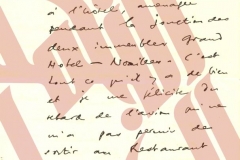 à l'hôtel, aménagée
pendant la jonction des
deux immeubles Grand
Hotel - Noailles - C'est
tout ce qu'il y a de bien
et je me félicite du
retard de l'avion qui ne
m'a pas permis de
sortir au Restaurant